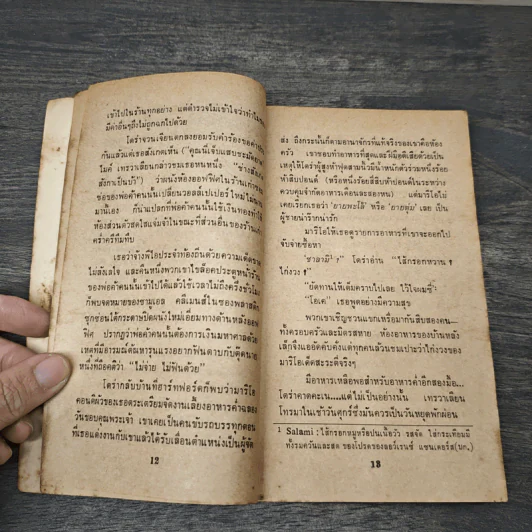 เข้าไปในร้านทุกอย่าง แต่ตำรวจไม่เข้าใจว่าทำไม
มีค่าอื่นๆถึงไม่ถูกฉกไปด้วย
โดร่าจวนเจียนตกลงยอมรับคำร้องขอ
กันแล้วแต่เธอสังเกตเห็น ("คุณนี่เจ็บแสบ
ไมค์ เทรวาเลียนกล่าวชมเธอหนหนึ่ง "ช่างสังเกต
สังกาเป็นบ้า") ว่าผนังห้องออฟฟิศในร้านเก่า
ของของพ่อค้าคนนั้นเปลี่ยนวอลล์เปเปอร์ใหม่
มานี่เอง กับนำแปลกที่พ่อค้าคนนั้นใช้เงินทองทำให้
ห้องส่วนตัวสดใสแจ่มจ้าในขณะที่ส่วนอื่นของร้านเก่า
คร่ำคร่าทึมทึบ
เธอว่าจ้างพีไอประจำท้องถิ่นด้วยความเด็ดขาด
ไม่ลังเลใจ และคืนหนึ่งพวกเขาไขล็อคประตูหน้าร้าน
ของพ่อค้าคนนั้นเข้าไปได้แล้วใช้เวลาไม่ถึงครึ่งชั่วโมง
ก็พบจดหมายของซามูเอล คลีเมนส์ในซองพลาสติค
ซุกซ่อนใต้กระดาษปิดผนังใหม่เอี่ยมทางด้านหลังออฟ
ฟิศ ปรากฏว่าพ่อค้าคนนั้นต้องการเงินมหาศาลด้วย
เหตุที่มีอารมณ์ดิ้นหารุนแรงอยากฟันดาบกับคุดนาย
หนึ่งที่ยึดคติว่า "ไม่จ่าย ไม่ฟันด้วย"
โดร่ากลับบ้านที่ฮาร์ทฟอร์ดก็พบว่ามาริโอ
คอนติผัวของเธอตระเตรียมจัดงานเลี้ยงอาหารค่ำฉลอง
วันขอบคุณพระเจ้า เขาเคยเป็นคนขับรถบรรทุกตอน
ที่เธอแต่งงานกับเขาแล้วได้รับเลื่อนตำแหน่งเป็นผู้จัด
12
ส่ง ถึงกระนั้นก็ตามอาณาจักรที่แท้จริงของเขาคือห้อง
ครัว เขาชอบทำอาหารที่สุดและก็มีอดีเสียด้วยเป็น
เหตุให้โดร่าผู้สูงห้าฟุตสามนิ้วมีน้ำหนักตัวร่วมหนึ่งร้อย
ห้าสิบปอนด์ (หรือหนึ่งร้อยสี่สิบห้าปอนด์ในระหว่าง
ควบคุมจำกัดอาหารเดือนละสองหน) แต่มาริโอไม่
เคยเรียกเธอว่า 'ยายพะโล้' หรือ 'ยายตุ่ม' เลย เป็น
ผู้ชายน่ารักน่ารัก
มาริโอให้เธอดูรายการอาหารที่เขาจะออกไป
จับจ่ายซื้อหา
"ซาลามี¹ ?" โดร่าอ่าน "ไส้กรอกหวาน ?
ไก่งวง ?"
"ยัดทานให้เต็มคราบไปเลย ไว้ใจผมซี"
"โอเค" เธอพูดอย่างมีความสุข
พวกเขาเชิญชวนแขกเหรื่อมากันสิบสองคน—
ทั้งครอบครัวและมิตรสหาย ห้องอาหารของบ้านหลัง
เล็กจึงแออัดคับคั่งแต่ทุกคนล้วนชมเปาะว่าไก่งวงของ
มาริโอเด็ดสะระตี่จริงๆ
มีอาหารเหลือพอสำหรับอาหารค่ำอีกสองมื้อ...
โดร่าคาดคะเน....แต่ไม่เป็นอย่างนั้น เทรวาเลียน
โทรมาในเช้าวันศุกร์ซึ่งมันควรเป็นวันหยุดพักผ่อน
1 Salami : ไส้กรอกหมูหรือปนเนื้อวัว รสจัด ใส่กระเทียมมี
ทั้งรมควันและสด ของโปรดของลอว์เรนซ์ แซนเดอร์ส(บก.)
13